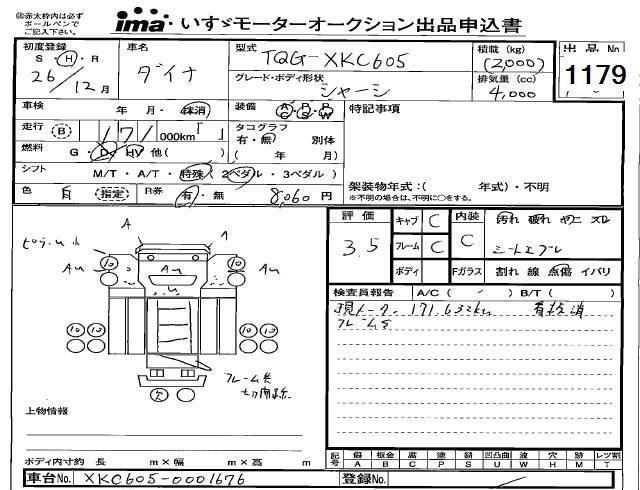 ㊟赤太枠内は必ず
ボールペンで
ご記入下さい。
ima・いすゞモーターオークション出品申込書
初度登録
S・H・R
26/12月
車名
ダイナ
型式 TQG-XKC605
グレード・ボディ形状
シャーシ
積載(kg)
(2,000)
排気量(cc)
4,000
出品No.
1179
車検 年 月・抹消
装備 A/C P/S P/W
特記事項
走行 B 171,000km「 」
タコグラフ
有・無 別体
( 年 月)
燃料 G・D・HV 他( )
シフト M/T・A/T・特殊(2ペダル・3ペダル)
色 白 指定
R券 有・無 8,060円
架装物年式:( 年式)・不明
※不明の場合は、不明に○をする。
評価 3.5
キャブ C
フレーム C
ボディ
内装 C
Fガラス
汚れ 破れ ヤケ スレ
割れ 線 点傷 イバリ
検査員報告 A/C( ) B/T( )
現メーター 171,632km 車検消
A
A
Au
Au
Au
10
10
10 10
10 10
フレーム先
切開跡
上物情報
ボディ内寸約 長 m×幅 m×高 m
記号 傷 板金 腐 塗 錆 凹凸曲 波 穴 跡 レツ割
A B C P S U W H M T
車台No. XKC605-0001676
登録No.